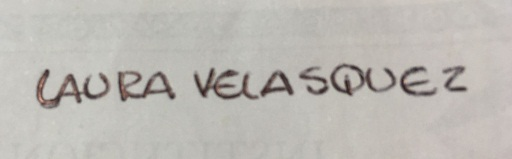 LAURA VELASQUEZ